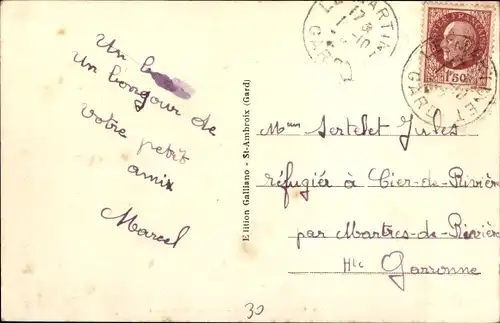 Un b
un bonjour de
votre petit
amix
Marcel
Edition Galliano - St-Ambroix (Gard)
LE MARTINET
17 35
1-10
GARD
POSTES FRANÇAISES
1F50
LE MARTINET
GARD
Mme Sertelet Jules
réfugiér à Cier-de-Rivière
par Martres-de-Rivière
Hte Garronne
30